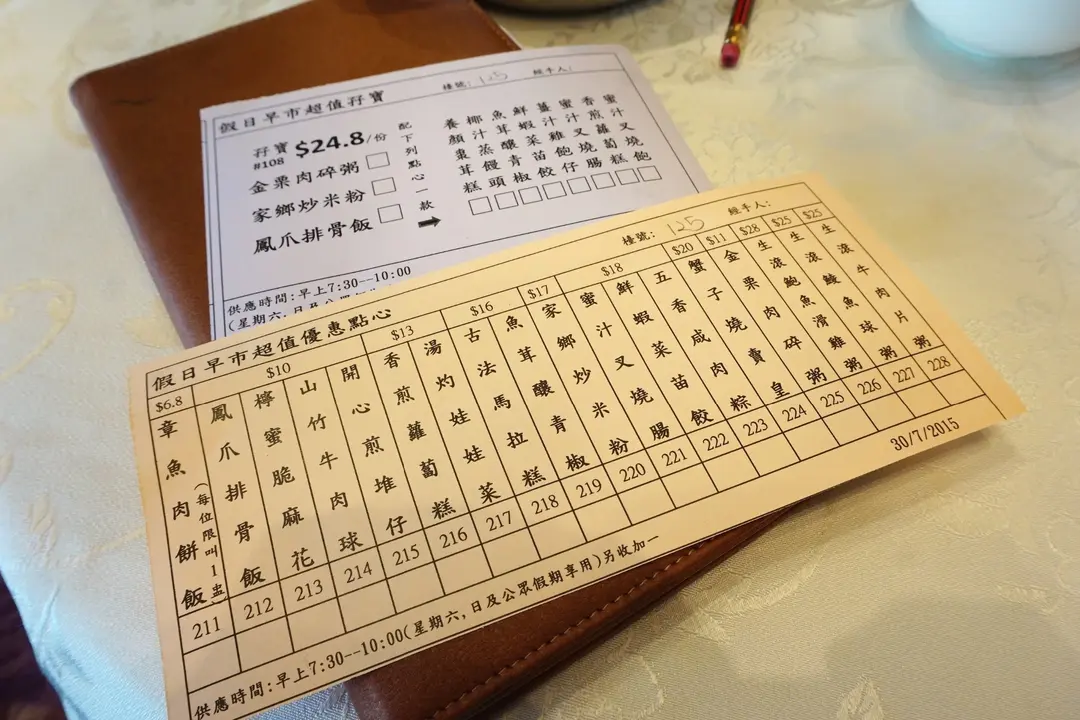 假日早市超值孖寶
檯號: 125
經手人:
孖寶 $24.8/份
#108
金粟肉碎粥
家鄉炒米粉
鳳爪排骨飯
配下列點心一款
養顏棗茸糕
椰汁蒸饅頭
魚茸釀青椒
鮮蝦菜苗餃
薑汁雞飽仔
蜜汁叉燒腸
香煎蘿蔔糕
蜜汁叉燒飽
供應時間:早上7:30--10:00
(星期六,日及公眾
假日早市超值優惠點心
檯號: 125
經手人:
$6.8 $10 $13 $16 $17 $18 $20 $11 $28 $25 $25
章魚肉餅飯
(每位限叫1盅)
鳳爪排骨飯
檸蜜脆麻花
山竹牛肉球
開心煎堆仔
香煎蘿蔔糕
湯灼娃娃菜
古法馬拉糕
魚茸釀青椒
家鄉炒米粉
蜜汁叉燒腸
鮮蝦菜苗餃
五香咸肉粽
蟹子燒賣皇
金粟肉碎粥
生滾鮑魚滑雞粥
生滾鯪魚球粥
生滾牛肉片粥
211 212 213 214 215 216 217 218 219 220 221 222 223 224 225 226 227 228
30/7/2015
供應時間:早上7:30--10:00(星期六,日及公眾假期享用)另收加一